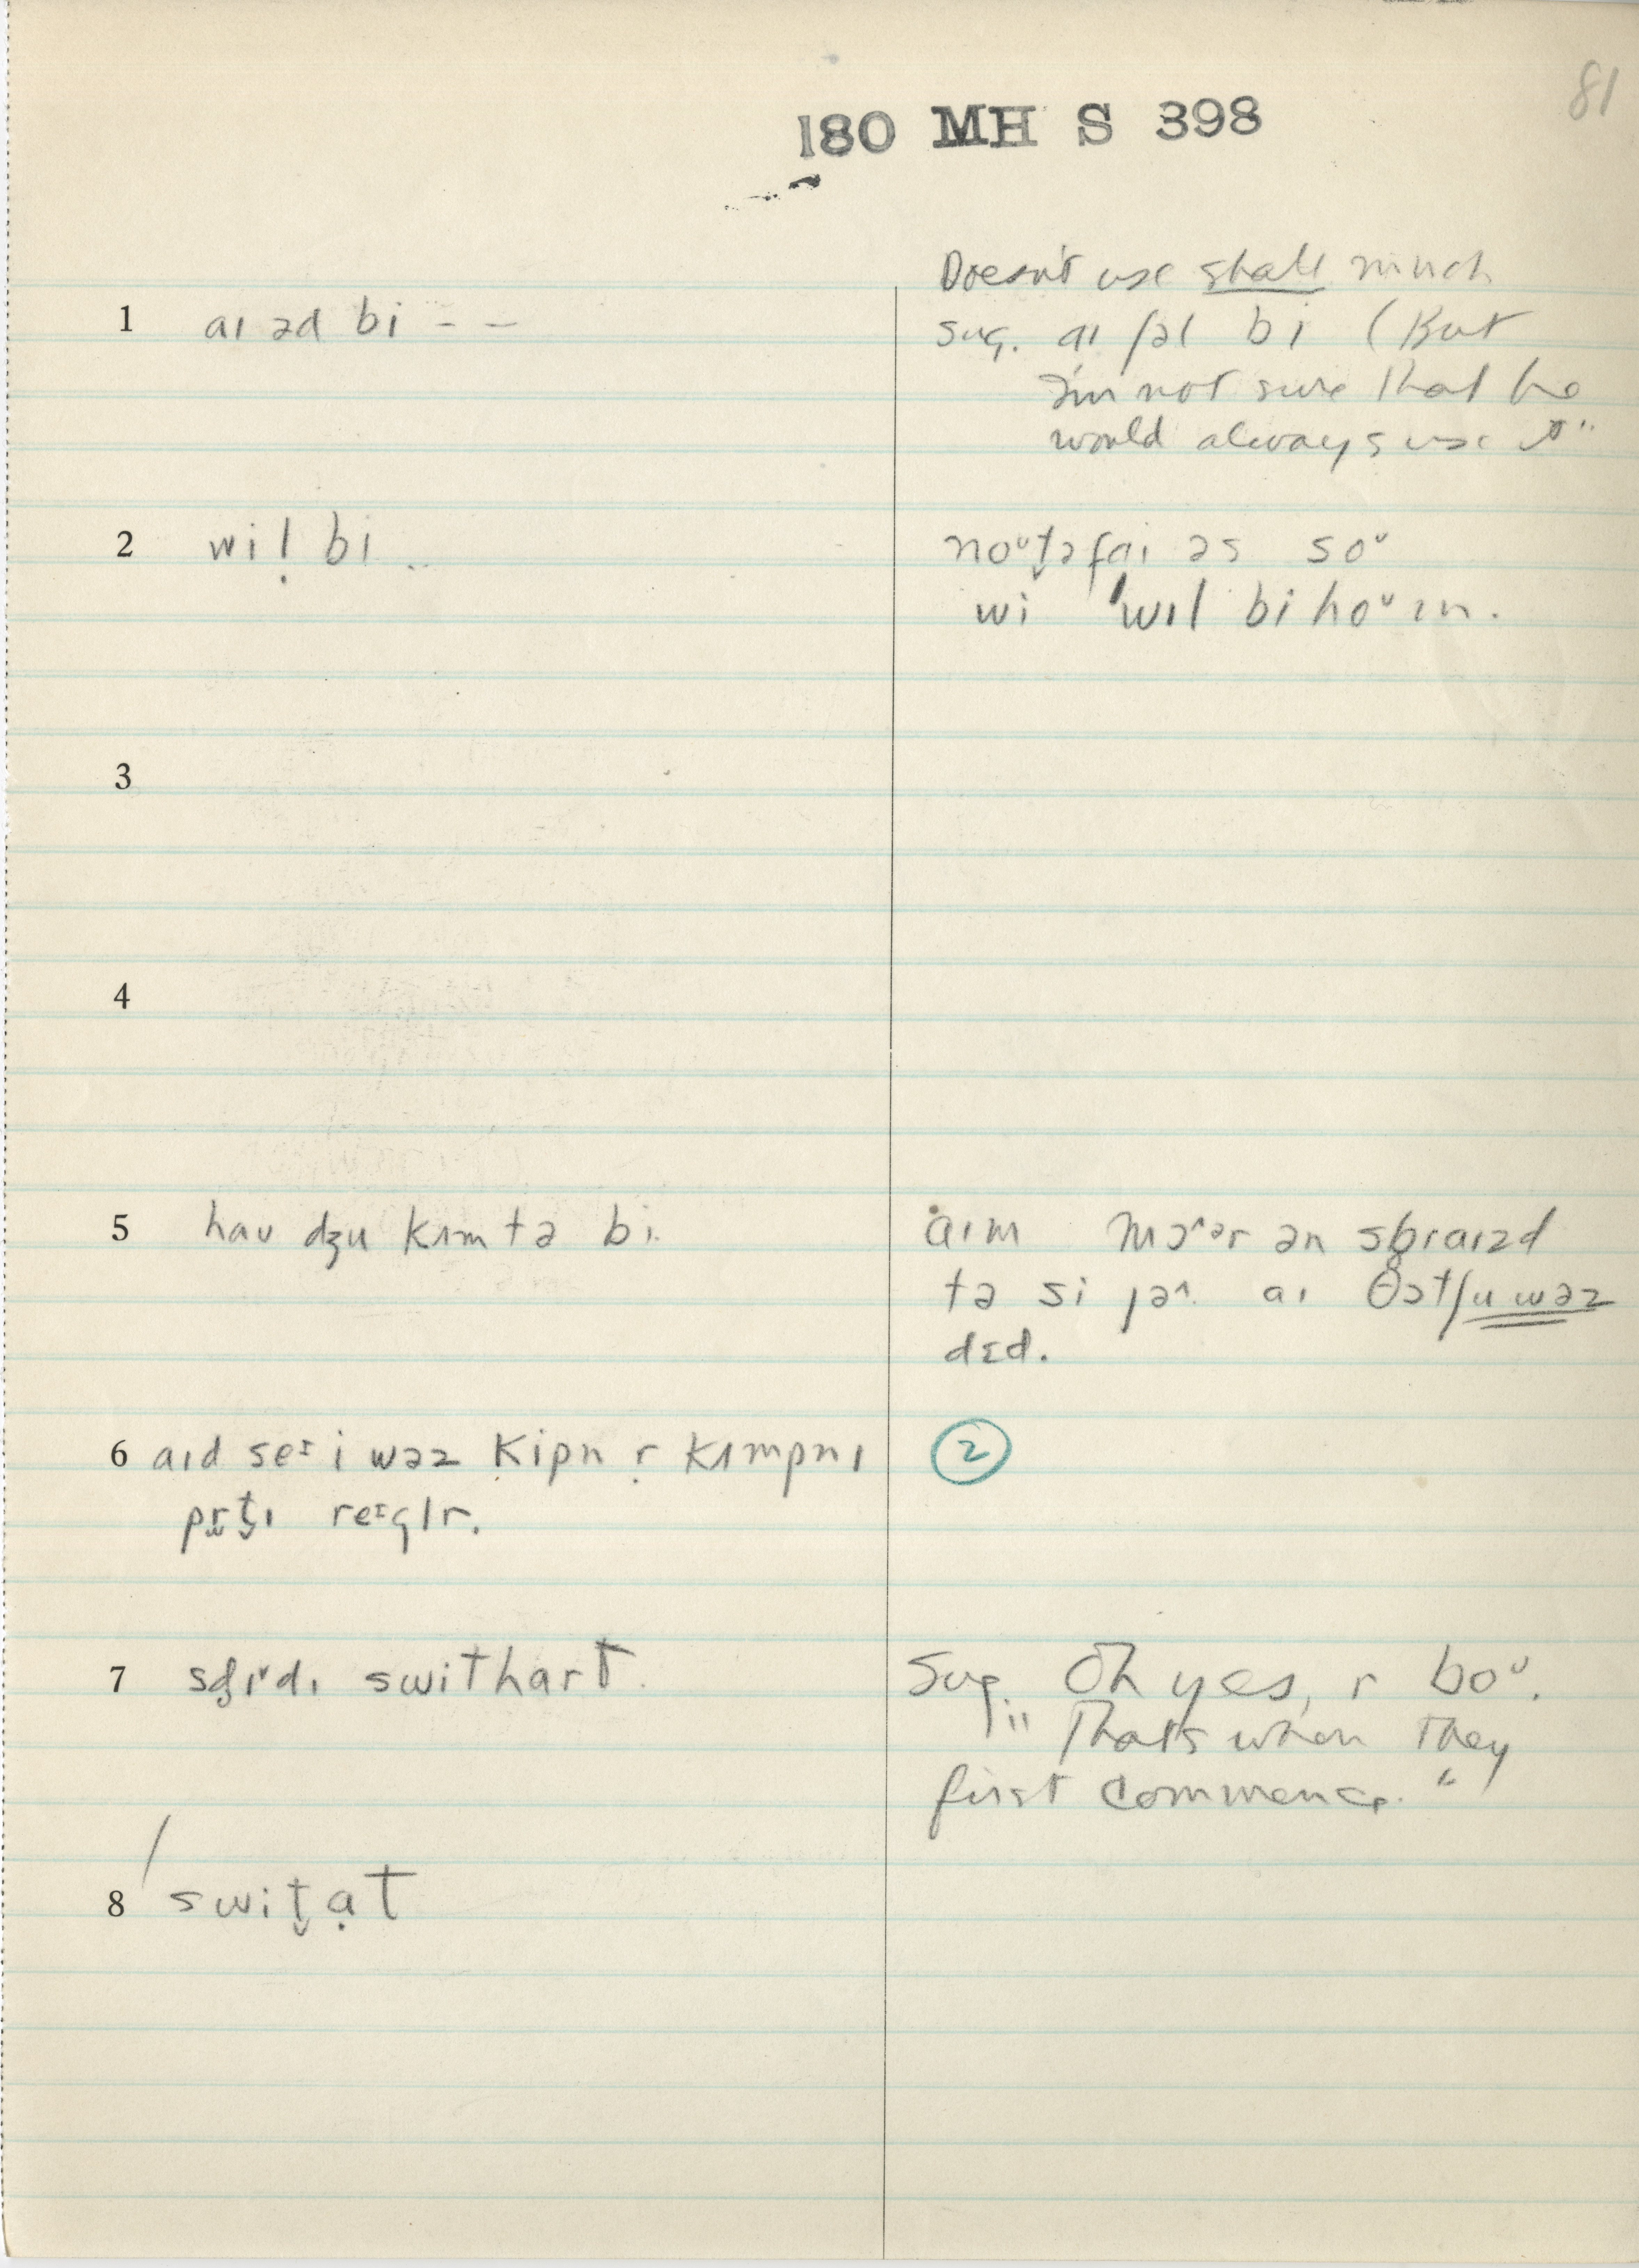 81
180 MH S 398
Doesn't use shall much
1 aɪ əd bi - -
sug. aɪ ʃəl bi (But
I'm not sure that he
would always use it"
2 wil̩ bi ..
noᴜt̬əfaɪ əs soᴜ
wi 'wɪl bi hoᴜɪn.
3
4
5 haʊ dʒu kɪm tə bi.
aɪm mɔ^ər ən sb̥raɪzd
tə si jə^. aɪ θɔtʃu wəz
dɛd.
6 aɪd seɪ i wəz kipn r̩ kɪmpnɪ
②
prt̬ɪ reɪglr.
7 sd̥ɪ˅dɪ swithart.
Sug. Oh yes, r boᴜ.
"Thats when they
first commence."
8 swit̬ạt